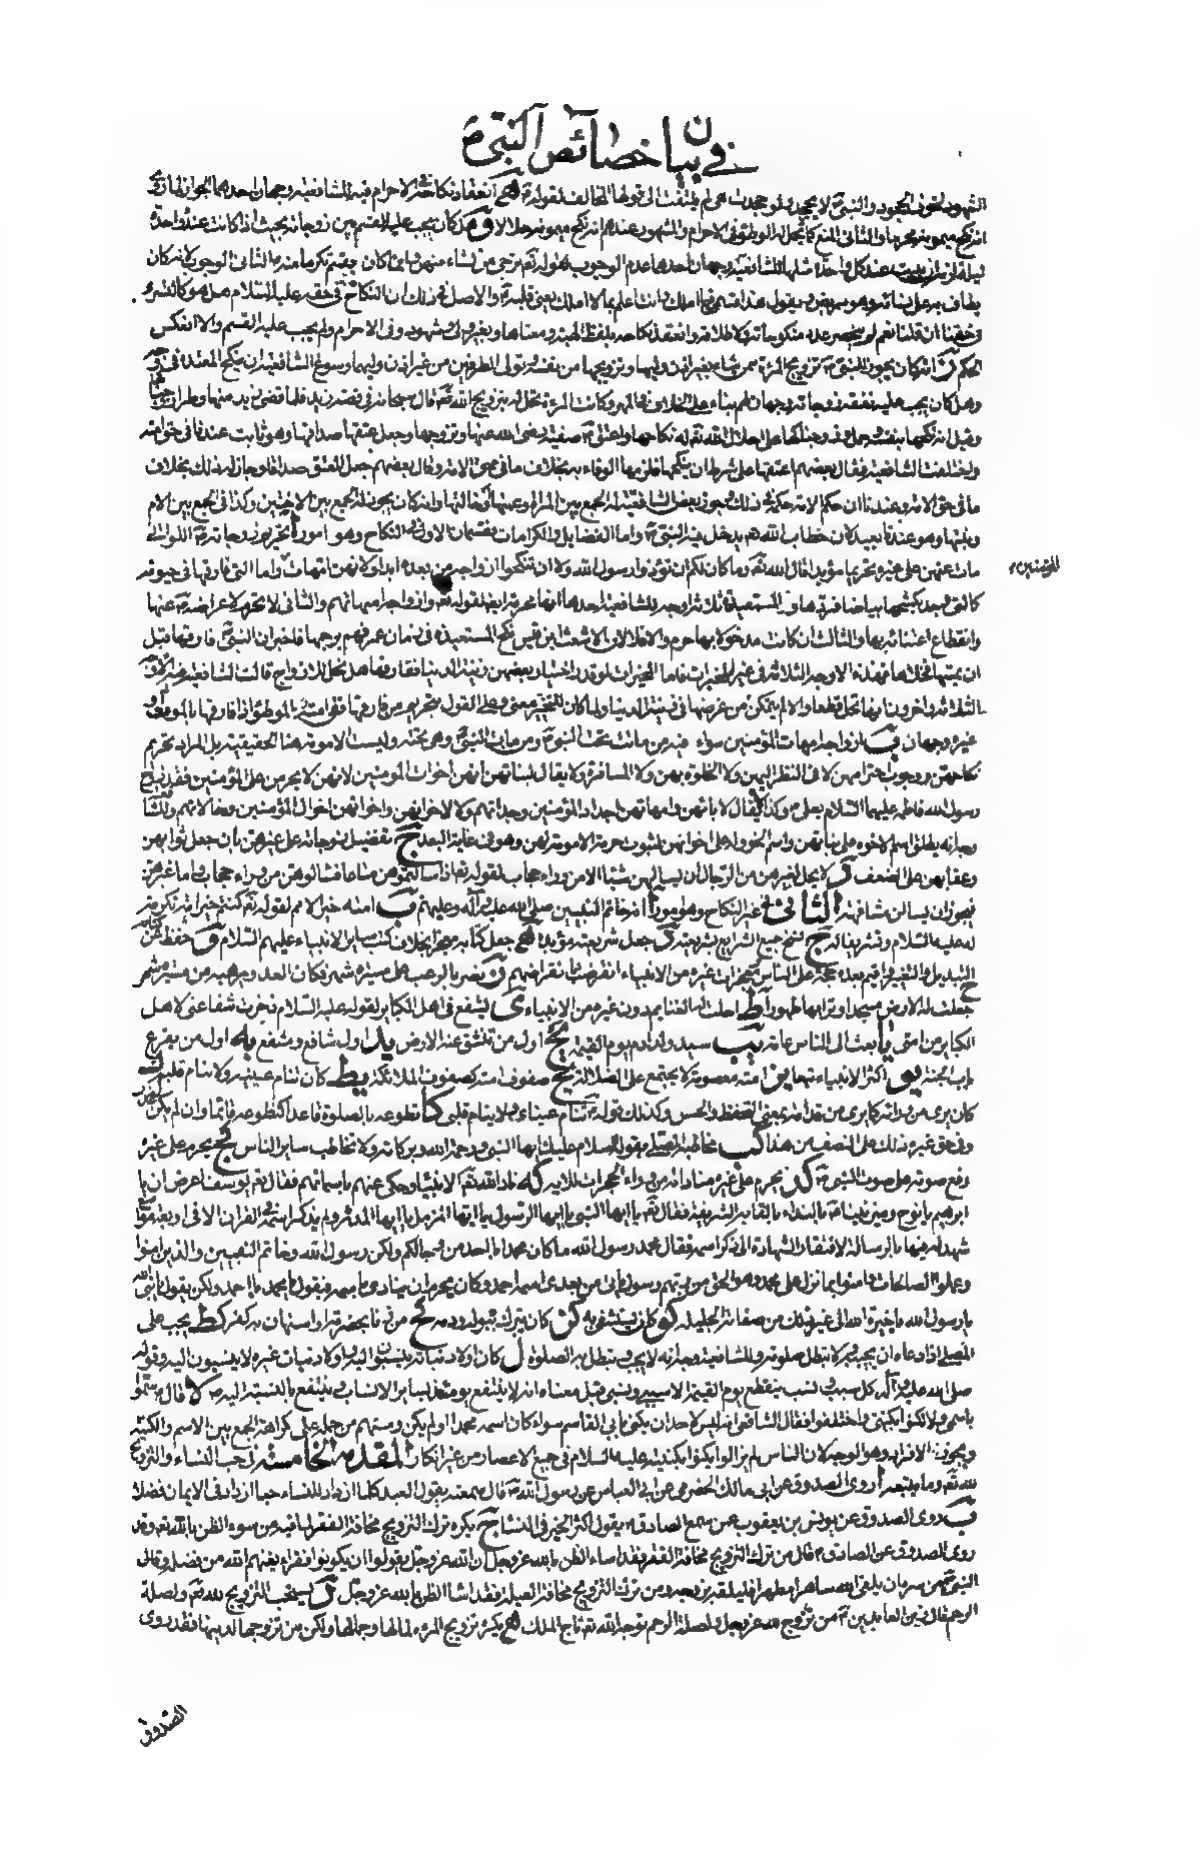 في بيان خصائص النبي ص
الشهود لخوف الجحود والنبي لا يجحد ولو جحدت هي لم يلتفت الى قولها لمخالفة لقوله تع انعقاد نكاحه في الاحرام فيه للشافعية وجهان احدهما الجواز لما روى
انه نكح ميمونة محرما والثاني المنع كما لم يحل له الوطؤ في الاحرام والمشهور عندهم انه نكح ميمونة حلالا و هل كان يجب عليه القسم بين زوجاته بحيث اذا كانت عنده واحدة
ليلة لزم ان يبيت عند كل واحدة مثلها للشافعية وجهان احدهما عدم الوجوب لقوله تع ترجي من تشاء منهن فانما كان يقسم تكرما منه والثاني الوجوب لانه كان
يطاف به على نسائه وهو مريض ويقول هذا قسمي فيما املك وانت اعلم بما لا املك يعني قلبه والاصل في ذلك ان النكاح في حقه عليه السلام هل هو كالتسري
في حقنا ان قلنا نعم لم ينحصر عدد منكوحاته ولا طلاقه وانعقد نكاحه بلفظ الهبة ومعناها وبغير ولي وشهود وفي الاحرام ولم يجب عليه القسم والا انعكس
الحكم انه كان يجوز للنبي تزويج المرأة ممن شاء بغير اذن وليها وتزويجها من نفسه وتولى الطرفين من غير اذن وليها وسوغ الشافعية ان ينكح المعتدة في وجه
وهل كان يجب عليه نفقة زوجاته وجهان لهم بناء على الخلاف في المهر وكانت المرأة تحل له بتزويج الله تع قال سبحانه في قصة زيد فلما قضى زيد منها وطرا زوجناكها
وقيل انه نكحها بنفسه وحمل قوله زوجناكها على احلال الله تع له نكاحها واعتق صفية رضي الله عنها وتزوجها وجعل عتقها صداقها وهو ثابت عندنا في حق امته
واختلفت الشافعية فقال بعضهم اعتقها على شرط ان ينكحها فلزمها الوفاء به بخلاف ما في حق الامة وقال بعضهم جعل العتق صداقا وجاز له ذلك بخلاف
ما في حق الامة وعندنا ان حكم الامة حكمه في ذلك وجوز بعض الشافعية له الجمع بين المرأة وعمتها او خالتها وانه كان يجوز له الجمع بين الاختين وكذا في الجمع بين الام
وبنتها وهو عندنا بعيد لان خطاب الله تع يدخل فيه النبي واما الفضايل والكرامات فقسمان الاول في النكاح وهو امور ا تحريم زوجاته اللواتي
مات عنهن على غيره تحريما مؤبدا قال الله تع وما كان لكم ان تؤذوا رسول الله ولا ان تنكحوا ازواجه من بعده ابدا ولانهن امهات واما التي فارقها في حيوته
المؤمنين
كالتي وجد بكشحها بياضا فردها والمستعيذة ثلثة اوجه للشافعية احدها انها محرمة ايضا لقوله تع وازواجه امهاتهم والثاني لا تحرم لاعراضه عنها
وانقطاع اعتنائه بها والثالث ان كانت مدخولا بها حرم والا فلا لان الاشعث ابن قيس نكح المستعيذة في زمان عمر فهم برجمها فاخبر ان النبي فارقها قبل
ان يمسها فخلاها فهذه الاوجه الثلاثة في غير المخيرات فاما المخيرات فلو قدر اختيار بعضهن زينة الدنيا ففارقها هل تحل للازواج قالت الشافعية
غيره وجهان ب ازواجه امهات المؤمنين سواء فيه من ماتت تحت النبي ومن مات النبي وهي تحته وليست الامومة هنا الحقيقية بل المراد تحريم
نكاحهن ووجوب احترامهن لا في النظر اليهن ولا الخلوة بهن ولا المسافرة ولا يقال لبناتهن انهن اخوات المؤمنين لانهن لا يحرمن على المؤمنين فقد زوج
رسول الله فاطمة عليها السلام بعلي وكذا لا يقال لآبائهن وامهاتهن اجداد المؤمنين وجداتهم ولا لاخوانهن واخواتهن اخوال المؤمنين وخالاتهم وللشا
وجه انه يطلق اسم الاخوة على بناتهن واسم الخؤولة على اخوانهن لثبوت حرمة الامومة لهن وهو في غاية البعد ج تفضيل زوجاته على غيرهن بان جعل ثوابهن
وعقابهن على الضعف د لا يحل لغيرهن من الرجال ان يسالهن شيئا الا من وراء حجاب لقوله تع اذا سالتموهن متاعا فسئلوهن من وراء حجاب واما غيرهن
فيجوز ان يسالن مشافهة الثاني في غير النكاح وهو امور ا انه خاتم النبيين صلى الله عليه وآله وعليهم ب امته خير الامم لقوله تع كنتم خير امة تكرمة
له عليه السلام وتشريفا له ج نسخ جميع الشرايع بشريعته د جعل شريعته مؤبدة ه جعل كتابه معجزا بخلاف كتب ساير الانبياء عليهم السلام و حفظ كتابه عن
التبديل والتغيير واقيم بعده حجة على الناس ومعجزات غيره من الانبياء انقرضت بانقراضهم ز نصر بالرعب على مسيرة شهر فكان العدو يرهبه من مسيرة شهر
ح جعلت له الارض مسجدا وترابها طهورا ط احلت له الغنايم دون غيره من الانبياء ى يشفع في اهل الكباير لقوله عليه السلام ذخرت شفاعتي لاهل
الكباير من امتي يا بعث الى الناس عامة يب سيد ولد آدم يوم القيمة يج اول من تنشق عنه الارض يد اول شافع ومشفع يه اول من يقرع
باب الجنة يو اكثر الانبياء تبعا يز امته معصومة لا يجتمع على الضلالة يح صفوف امته كصفوف الملائكة يط كان تنام عينه ولا ينام قلبه ك
كان يرى من ورائه كما يرى من قدامه بمعنى التحفظ والحس وكذلك قوله تنام عيناي ولا ينام قلبي كا تطوعه بالصلوة قاعدا كتطوعه قائما وان لم يكن عذر
وفي حق غيره ذلك على النصف من هذا كب مخاطبة المصلي بقوله السلام عليك ايها النبي ورحمة الله وبركاته ولا يخاطب ساير الناس كج يحرم على غيره
رفع صوته على صوت النبي كد يحرم على غيره مناداته من وراء الحجرات للآية كه نادى الله تع الانبياء وحكى عنهم باسمائهم فقال تع يوسف اعرض ان يا
ابرهيم يا نوح وميز نبينا بالنداء بالقابه الشريفة فقال تع يا ايها النبي يا ايها الرسول يا ايها المزمل يا ايها المدثر ولم يذكر اسمه في القران الا في اربعة مواضع
شهد له فيها بالرسالة لافتقار الشهادة الى ذكر اسمه فقال محمد رسول الله ما كان محمد ابا احد من رجالكم ولكن رسول الله وخاتم النبيين والذين امنوا
وعملوا الصالحات وامنوا بما نزل على محمد وهو الحق من ربهم رسول ياتي من بعدى اسمه احمد وكان يحرم ان ينادى باسمه فيقول يا محمد يا احمد ولكن يقول يا نبي الله
يا رسول الله يا خيرة الله الى غير ذلك من صفاته الجليلة كو كان يستشفى به كز كان يتبرك ببوله ودمه كح من زنا بحضرته او استهان به كفر كط يجب على
المصلي اذا دعاه ان يجيبه ولا تبطل صلوته وللشافعية وجه انه لا يجب وتبطل به الصلوة ل كان اولاد بناته ينسبون اليه واولاد بنات غيره لا ينسبون اليه وقوله
صلى الله عليه وآله كل سبب ونسب ينقطع يوم القيمة الا سببي ونسبي قيل معناه انه لا ينتفع يومئذ بساير الانساب وينتفع بالنسبة اليه لا قال تسموا
باسمي ولا تكنوا بكنيتي واختلفوا فقال الشافعي انه ليس لاحد ان يكنى بابي القاسم سواء كان اسمه محمدا او لم يكن ومنهم من حمله على كراهة الجمع بين الاسم والكنية
ويجوز الافراد وهو الوجه لان الناس لم يزالوا يكنوا بكنيته عليه السلام في جميع الاعصار من غير انكار المقدمة الخامسة في حب النساء والتزويج
لله تع وما يتبعه ا روى الصدوق عن ابي مالك الحضرمي عن ابي العباس عن رسول الله قال سمعته يقول العبد كلما ازداد للنساء حبا ازداد في الايمان فضلا
ب روى الصدوق عن يونس بن يعقوب عمن سمع الصادق يقول اكثر الخير في النساء ج يكره ترك التزويج مخافة الفقر لما فيه من سوء الظن بالله تع وقد
روى الصدوق عن الصادق قال من ترك التزويج مخافة الفقر فقد اساء الظن بالله عز وجل ان الله عز وجل يقول ان يكونوا فقراء يغنهم الله من فضله وقال
النبي من سره ان يلقى الله طاهرا مطهرا فليلقه بزوجة ومن ترك التزويج مخافة العيلة فقد اساء الظن بالله عز وجل د يستحب التزويج لله تع ولصلة
الرحم قال زين العابدين من تزوج لله عز وجل ولصلة الرحم توجه الله تع تاج الملك ه يكره تزويج المرأة لمالها وجمالها ولكن من تزوجها لدينها فقد روى
الصدوق